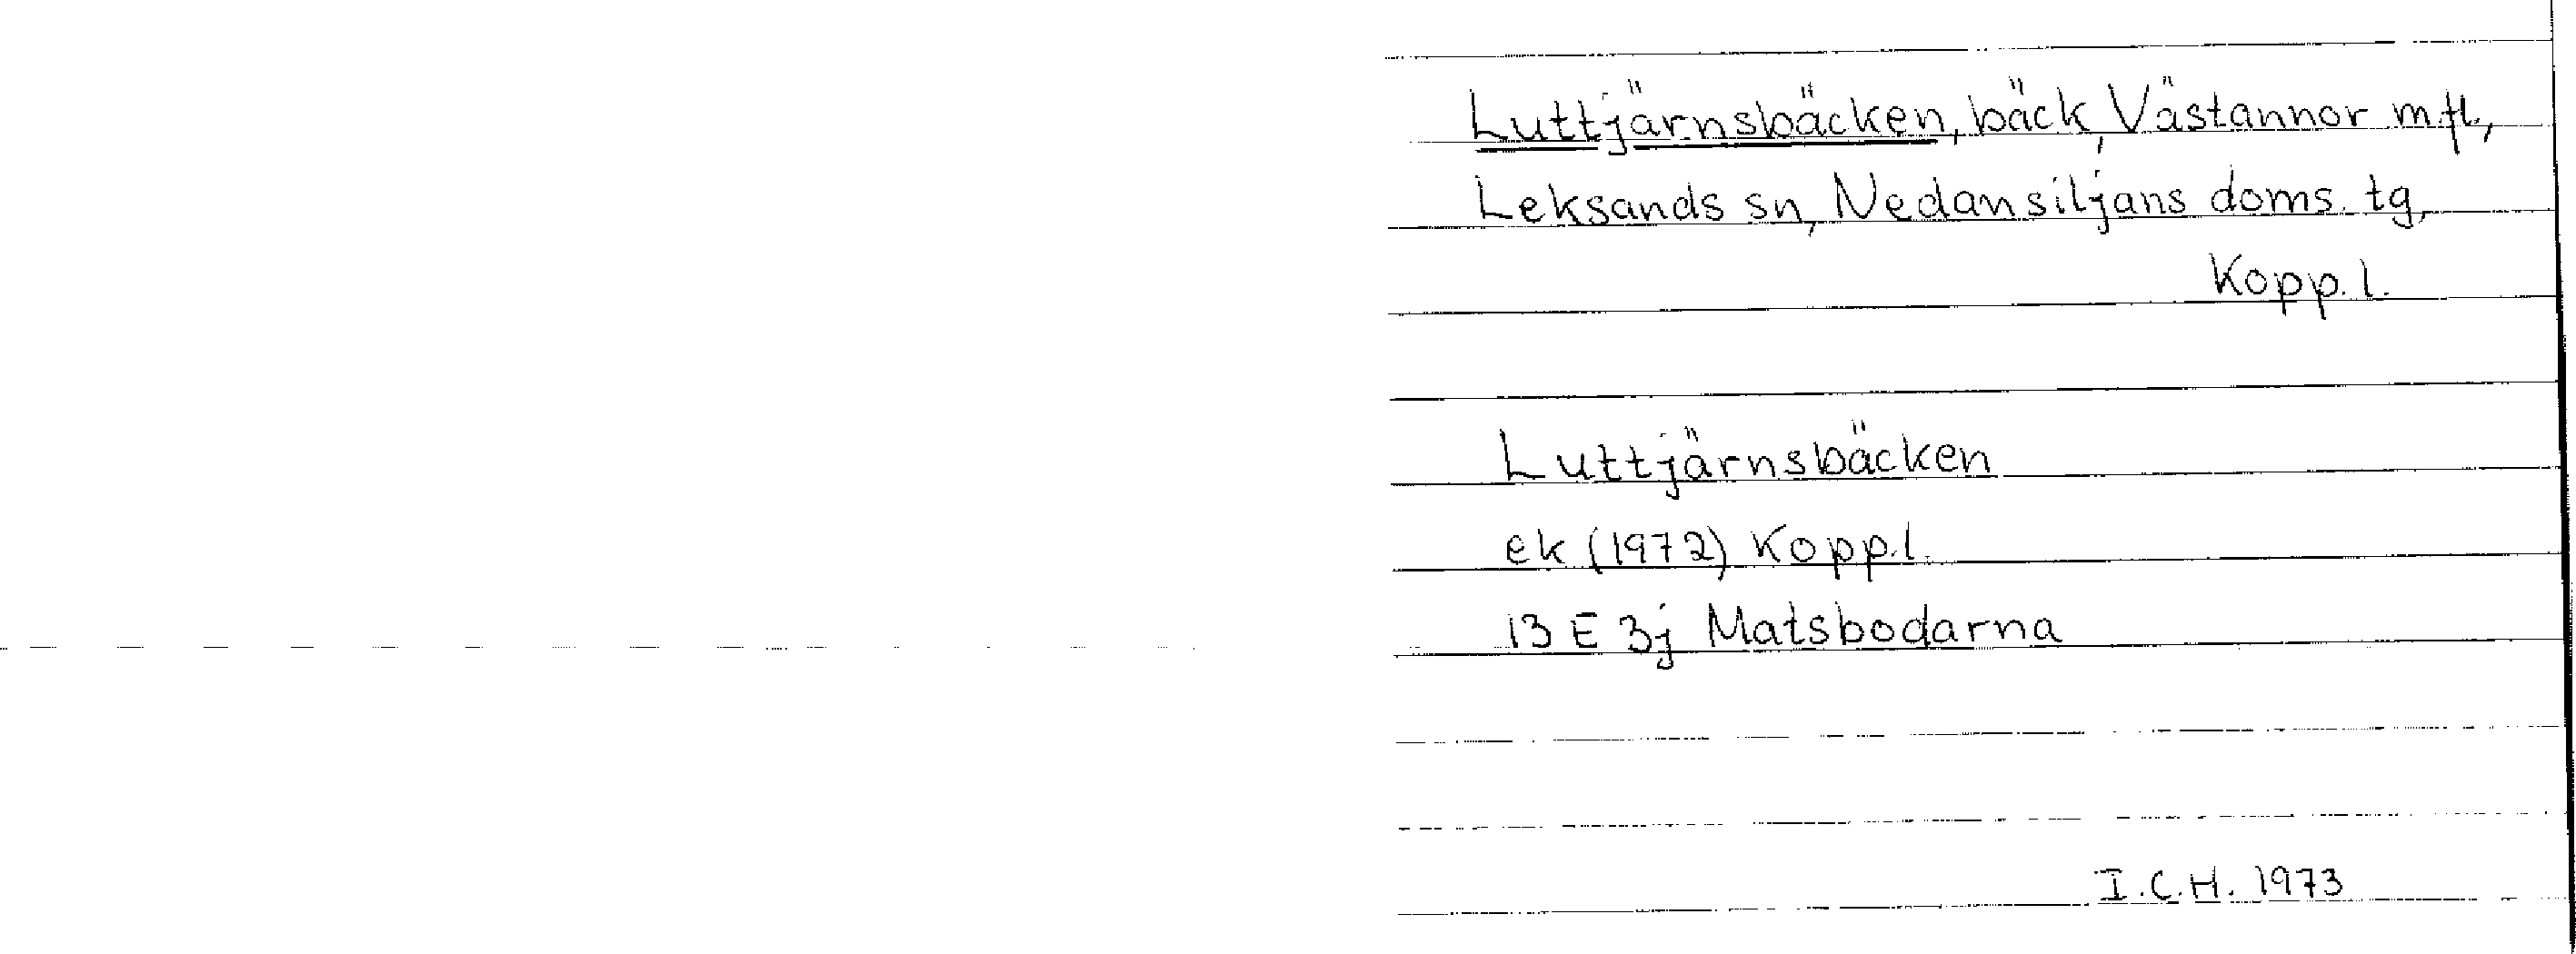 Luttjärnsbäcken, bäck, Västannor mfl.,
Leksands sn, Nedansiljans doms. tg,
Kopp. l.
Luttjärnsbäcken
ek (1972) Kopp.l.
13 E 3j Matsbodarna
I.C.H. 1973